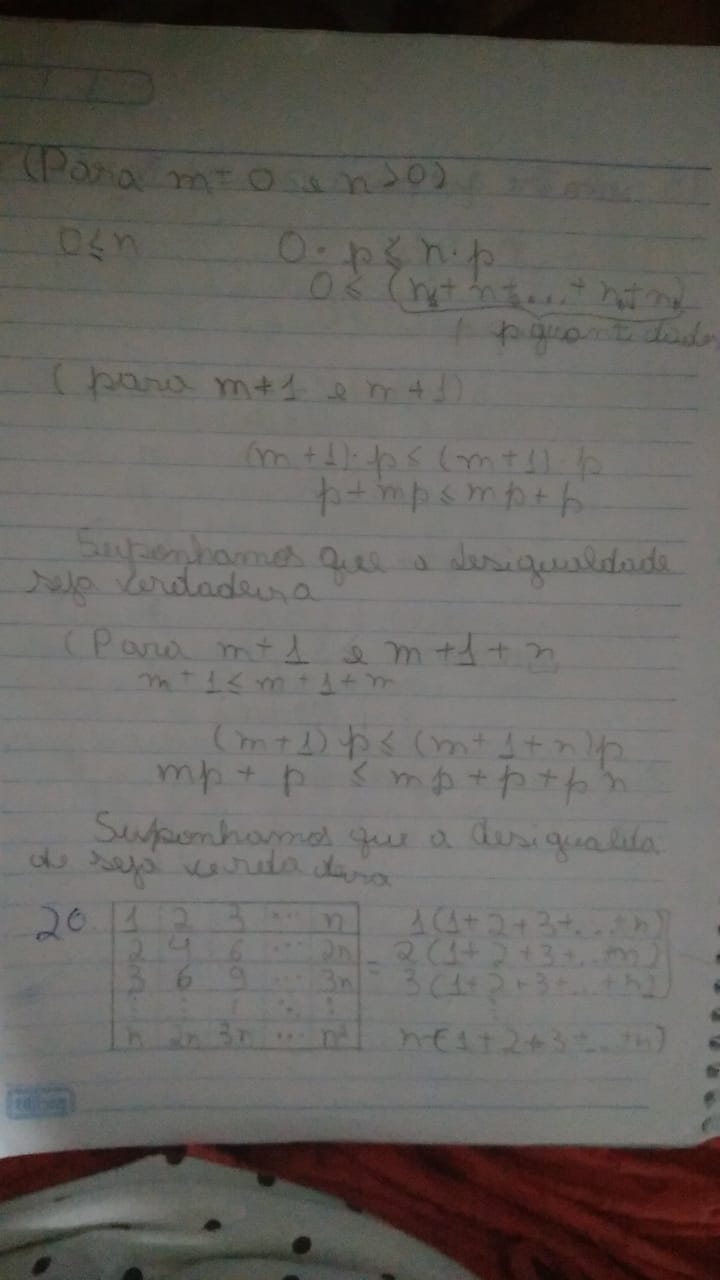 (Para m = 0 e n > 0)
0 ≤ n 0 · p ≤ n · p
0 ≤ (n + n + ... + n + n)
p quantidade
(para m + 1 e m + 1)
(m + 1) · p ≤ (m + 1) · p
p + mp ≤ mp + p
Suponhamos que a desigualdade
seja verdadeira
(Para m + 1 e m + 1 + n
m + 1 ≤ m + 1 + n
(m + 1) p ≤ (m + 1 + n) p
mp + p ≤ mp + p + p n
Suponhamos que a desigualda
de seja
20 1 2 3 ... n 1 (1 + 2 + 3 + ... + n)
2 4 6 ... 2n = 2 (1 + 2 + 3 + ... + n)
3 6 9 ... 3n 3 (1 + 2 + 3 + ... + n)
⋮ ⋮ ⋮ ⋱ ⋮ ⋮
n 2n 3n ... n² n (1 + 2 + 3 + ... + n)